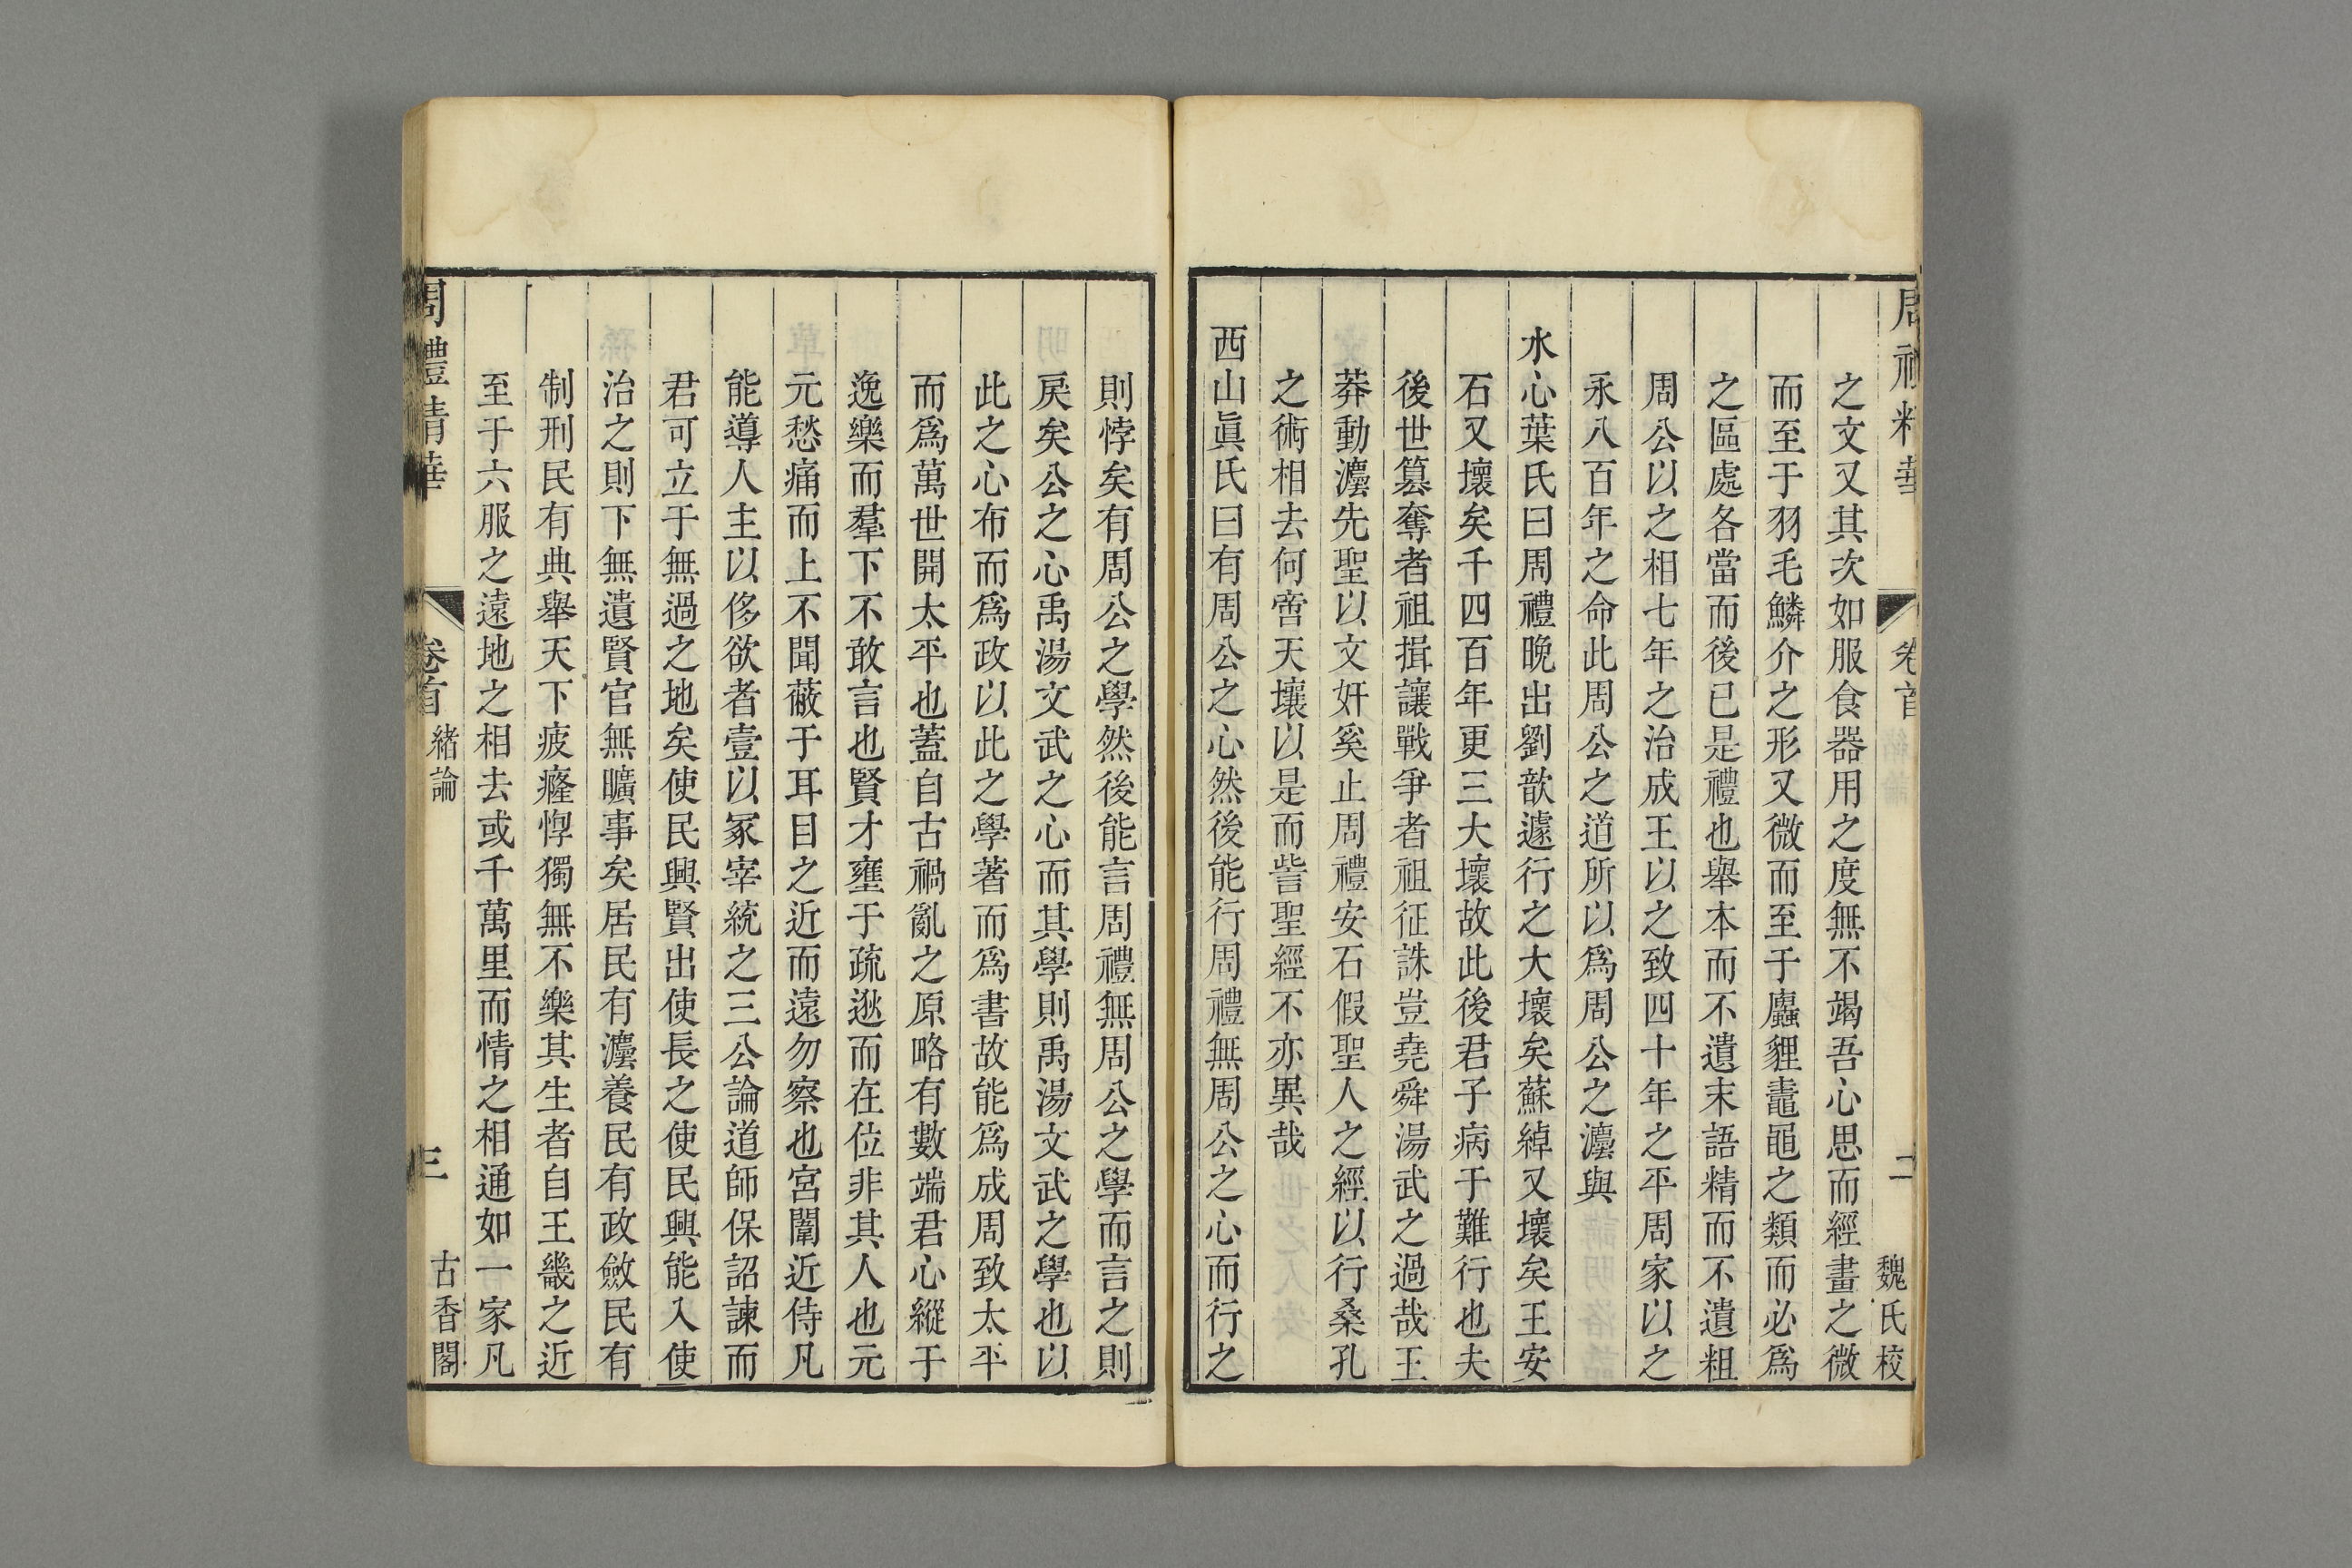 周禮精華 卷首 二 魏氏校
之文又其次如服食器用之度無不竭吾心思而經畫之微
而至于羽毛鱗介之形又微而至于廳貍鼃黽之類而必爲
之區處各當而後已是禮也舉本而不遺末語精而不遺粗
周公以之相七年之治成王以之致四十年之平周家以之
永八百年之命此周公之道所以爲周公之灋與
水心葉氏曰周禮晚出劉歆遽行之大壞矣蘇綽又壞矣王安
石又壞矣千四百年更三大壞故此後君子病于難行也夫
後世篡奪者祖揖讓戰爭者祖征誅豈堯舜湯武之過哉王
莽動灋先聖以文奸奚止周禮安石假聖人之經以行桑孔
之術相去何啻天壤以是而訾聖經不亦異哉
西山眞氏曰有周公之心然後能行周禮無周公之心而行之
則悖矣有周公之學然後能言周禮無周公之學而言之則
戾矣公之心禹湯文武之心而其學則禹湯文武之學也以
此之心布而爲政以此之學著而爲書故能爲成周致太平
而爲萬世開太平也蓋自古禍亂之原略有數端君心縱于
逸樂而羣下不敢言也賢才壅于疏逖而在位非其人也元
元愁痛而上不聞蔽于耳目之近而遠勿察也宮闈近侍凡
能導人主以侈欲者壹以冢宰統之三公論道師保詔諫而
君可立于無過之地矣使民興賢出使長之使民興能入使
治之則下無遺賢官無曠事矣居民有灋養民有政斂民有
制刑民有典舉天下疲癃惸獨無不樂其生者自王畿之近
至于六服之遠地之相去或千萬里而情之相通如一家凡
周禮精華 卷首 緒論 三 古香閣